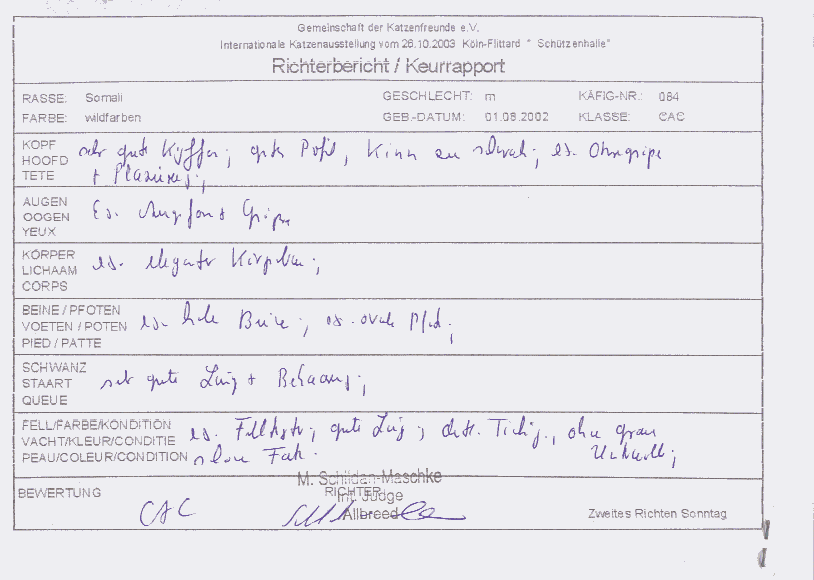 Gemeinschaft der Katzenfreunde e.V.
Internationale Katzenausstellung vom 26.10.2003 Köln-Flittard " Schützenhalle"
Richterbericht / Keurrapport
RASSE: Somali GESCHLECHT: m KÄFIG-NR.: 084
FARBE: wildfarben GEB.-DATUM: 01.08.2002 KLASSE: CAC
KOPF
HOOFD
TETE
sehr gute ; gutes Profil, Kinn zu schwach; es.
+
AUGEN
OOGEN
YEUX
es. +
KÖRPER
LICHAAM
CORPS
es. eleganter ;
BEINE / PFOTEN
VOETEN / POTEN
PIED / PATTE
es. hohe Beine; es. ovale
SCHWANZ
STAART
QUEUE
sehr gute Läng + Behaarung;
FELL/FARBE/KONDITION
VACHT/KLEUR/CONDITIE
PEAU/COLEUR/CONDITION
es. ; gute Läng; , ohne graue
Unterwolle;
M. Schildan-Maschke
BEWERTUNG RICHTER
Int. Judge
CAC Allbreed Zweites Richten Sonntag